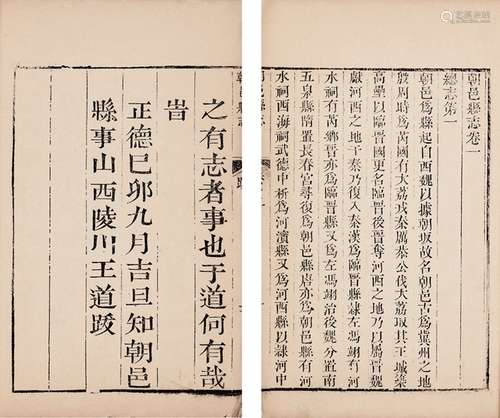 朝邑縣志卷一
總志第一
朝邑爲縣起自西魏以據朝坂故名朝邑古爲冀州之地
殷周時爲芮國有大荔戎秦厲恭公伐大荔取其王城築
高壘以臨晉國更名臨晉奪河西之地乃以屬晉魏
獻河西之地于秦乃復入秦漢爲臨晉縣隷左馮翊有河
水祠有芮鄉晉亦爲臨晉又爲左馮翊治後魏分置南
五泉縣隋置長春宮尋復爲朝邑縣唐亦爲朝邑縣有河
水祠西海祠武德中析爲河濱縣又爲河西縣以隷河中
朝邑縣志
跋
之有志者事也于道何有哉
旹
正德巳卯九月吉旦知朝邑
縣事山西陵川王道跋